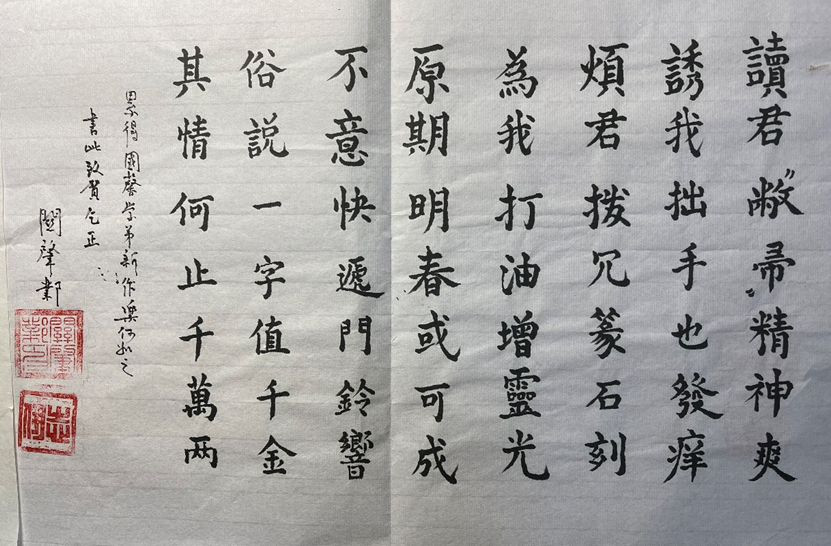 讀君“敝帚”精神爽
誘我拙手也發痒
煩君撥冗篆石刻
為我打油增靈光
原期明春或可成
不意快遞門鈴響
俗説一字值千金
其情何止千萬两
累得國馨学弟新作樂何如之
書此致賀乞正
關肇鄴